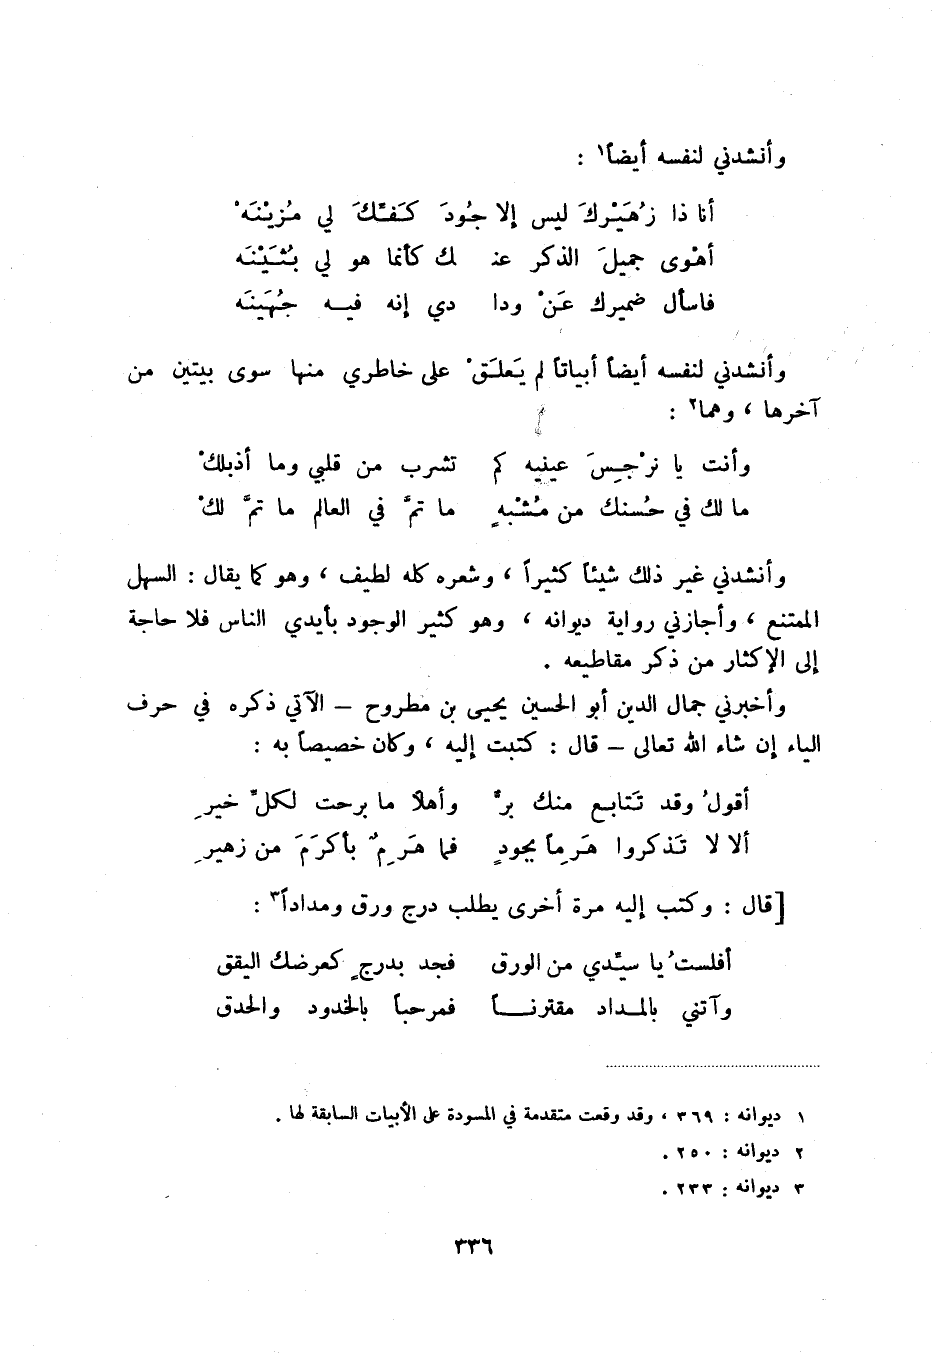 وأنشدني لنفسه أيضاً١ :
أنا ذا زُهَيْرك ليس إلا جُودَ كَفّكَ لي مُزيْنَهْ
أهْوى جميلَ الذكر عنـ لك كأنما هو لي بُثَيْنَه
فاسأل ضميرك عَنْ ودا دي إنه فيــه جهَينَه
وأنشدني لنفسه أيضاً أبياتاً لم يَعلَقْ على خاطري منها سوى بيتين من
آخرها ، وهما٢ :
وأنت يا نرْجِسَ عينيه كم تشرب من قلبي وما أذبلكْ
ما لك في حُسنك من مُشْبهٍ ما تمَّ في العالم ما تمَّ لكْ
وأنشدني غير ذلك شيئاً كثيراً ، وشعره كله لطيف ، وهو كما يقال : السهل
الممتنع ، وأجازني رواية ديوانه ، وهو كثير الوجود بأيدي الناس فلا حاجة
إلى الإكثار من ذكر مقاطيعه .
وأخبرني جمال الدين أبو الحسين يحيى بن مطروح – الآتي ذكره في حرف
الياء إن شاء الله تعالى – قال : كتبت إليه ، وكان خصيصاً به :
أقولُ وقد تَتابع منك برٌّ وأهلاً ما برحت لكلّ خيرِ
ألا لا تَذكروا هَرِماً بجودٍ فما هَرِمٌ بأكرَمَ من زهيرِ
[قال : وكتب إليه مرة أخرى يطلب درج ورق ومداداً٣ :
أفلستُ يا سيّدي من الورق فجد بدرجٍ كعرضك اليقق
وآتني بالمــداد مقترنــاً فمرحباً بالخدود والحدق
١ ديوانه : ٣٦٩ ، وقد وقعت متقدمة في المسودة على الأبيات السابقة لها .
٢ ديوانه : ٢٥٠ .
٣ ديوانه : ٢٣٣ .
٣٣٦